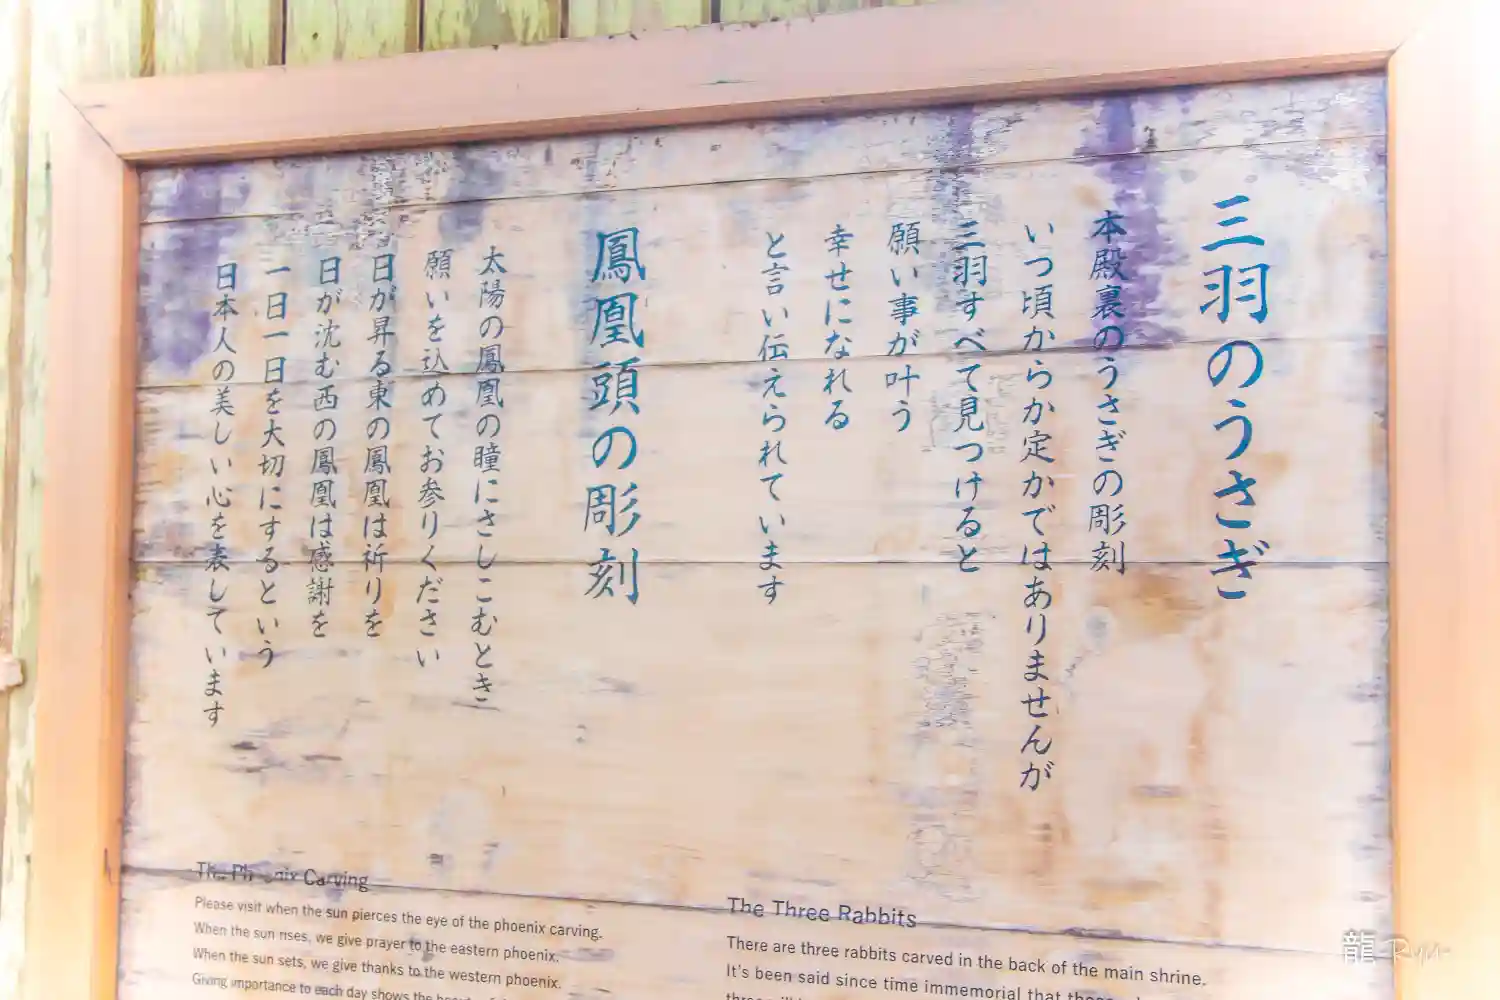 三羽のうさぎ
本殿裏のうさぎの彫刻
いつ頃からか定かではありませんが
三羽すべて見つけると
願い事が叶う
幸せになれる
と言い伝えられています
鳳凰頭の彫刻
太陽の鳳凰の瞳にさしこむとき
願いを込めてお参りください
日が昇る東の鳳凰は祈りを
日が沈む西の鳳凰は感謝を
一日一日を大切にするという
日本人の美しい心を表しています
The Phoenix Carving
Please visit when the sun pierces the eye of the phoenix carving.
When the sun rises, we give prayer to the eastern phoenix.
When the sun sets, we give thanks to the western phoenix.
Giving importance to each day shows the
The Three Rabbits
There are three rabbits carved in the back of the main shrine.
It's been said since time immemorial that
龍 Ryu